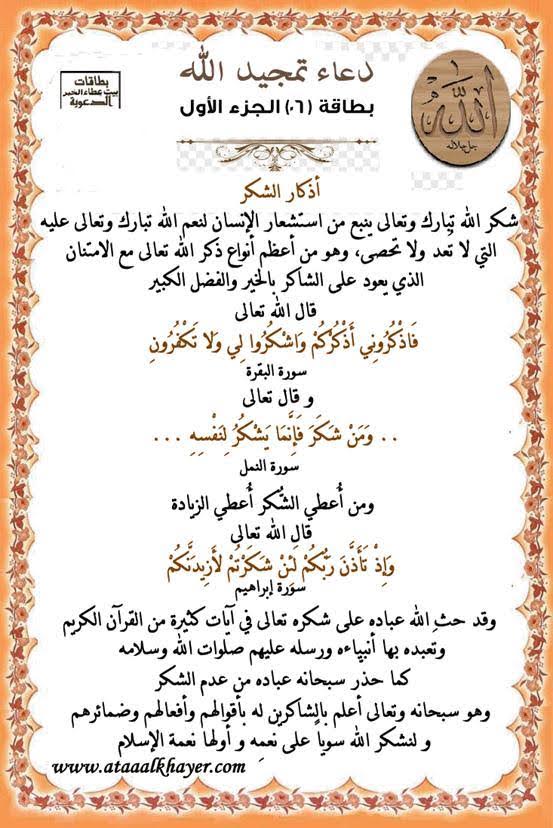 دعاء تمجيد الله
بطاقة (٠٦) الجزء الأول
بطاقات
بيت عطاء الخير
الدعوية
الله
جل جلاله
أذكار الشكر
شكر الله تبارك وتعالى ينبع من استشعار الإنسان لنعم الله تبارك وتعالى عليه
التي لا تُعد ولا تحصى، وهو من أعظم أنواع ذكر الله تعالى مع الامتنان
الذي يعود على الشاكر بالخير والفضل الكبير
قال الله تعالى
فَاذْكُرُونِي أَذْكُرْكُمْ وَاشْكُرُوا لِي وَلَا تَكْفُرُونِ
سورة البقرة
و قال تعالى
.. وَمَنْ شَكَرَ فَإِنَّمَا يَشْكُرُ لِنَفْسِهِ ...
سورة النمل
ومن أُعطي الشُكر أُعطي الزيادة
قال الله تعالى
وَإِذْ تَأَذَّنَ رَبُّكُمْ لَئِنْ شَكَرْتُمْ لَأَزِيدَنَّكُمْ
سورة إبراهيم
وقد حث الله عباده على شكره تعالى في آيات كثيرة من القرآن الكريم
وتعبده بها أنبياءه ورسله عليهم صلوات الله وسلامه
كما حذر سبحانه عباده من عدم الشكر
وهو سبحانه وتعالى أعلم بالشاكرين له بأقوالهم وأفعالهم وضمائرهم
و لنشكر الله سوياً على نعمِه و أولها نعمة الإسلام
www.ataaalkhayer.com